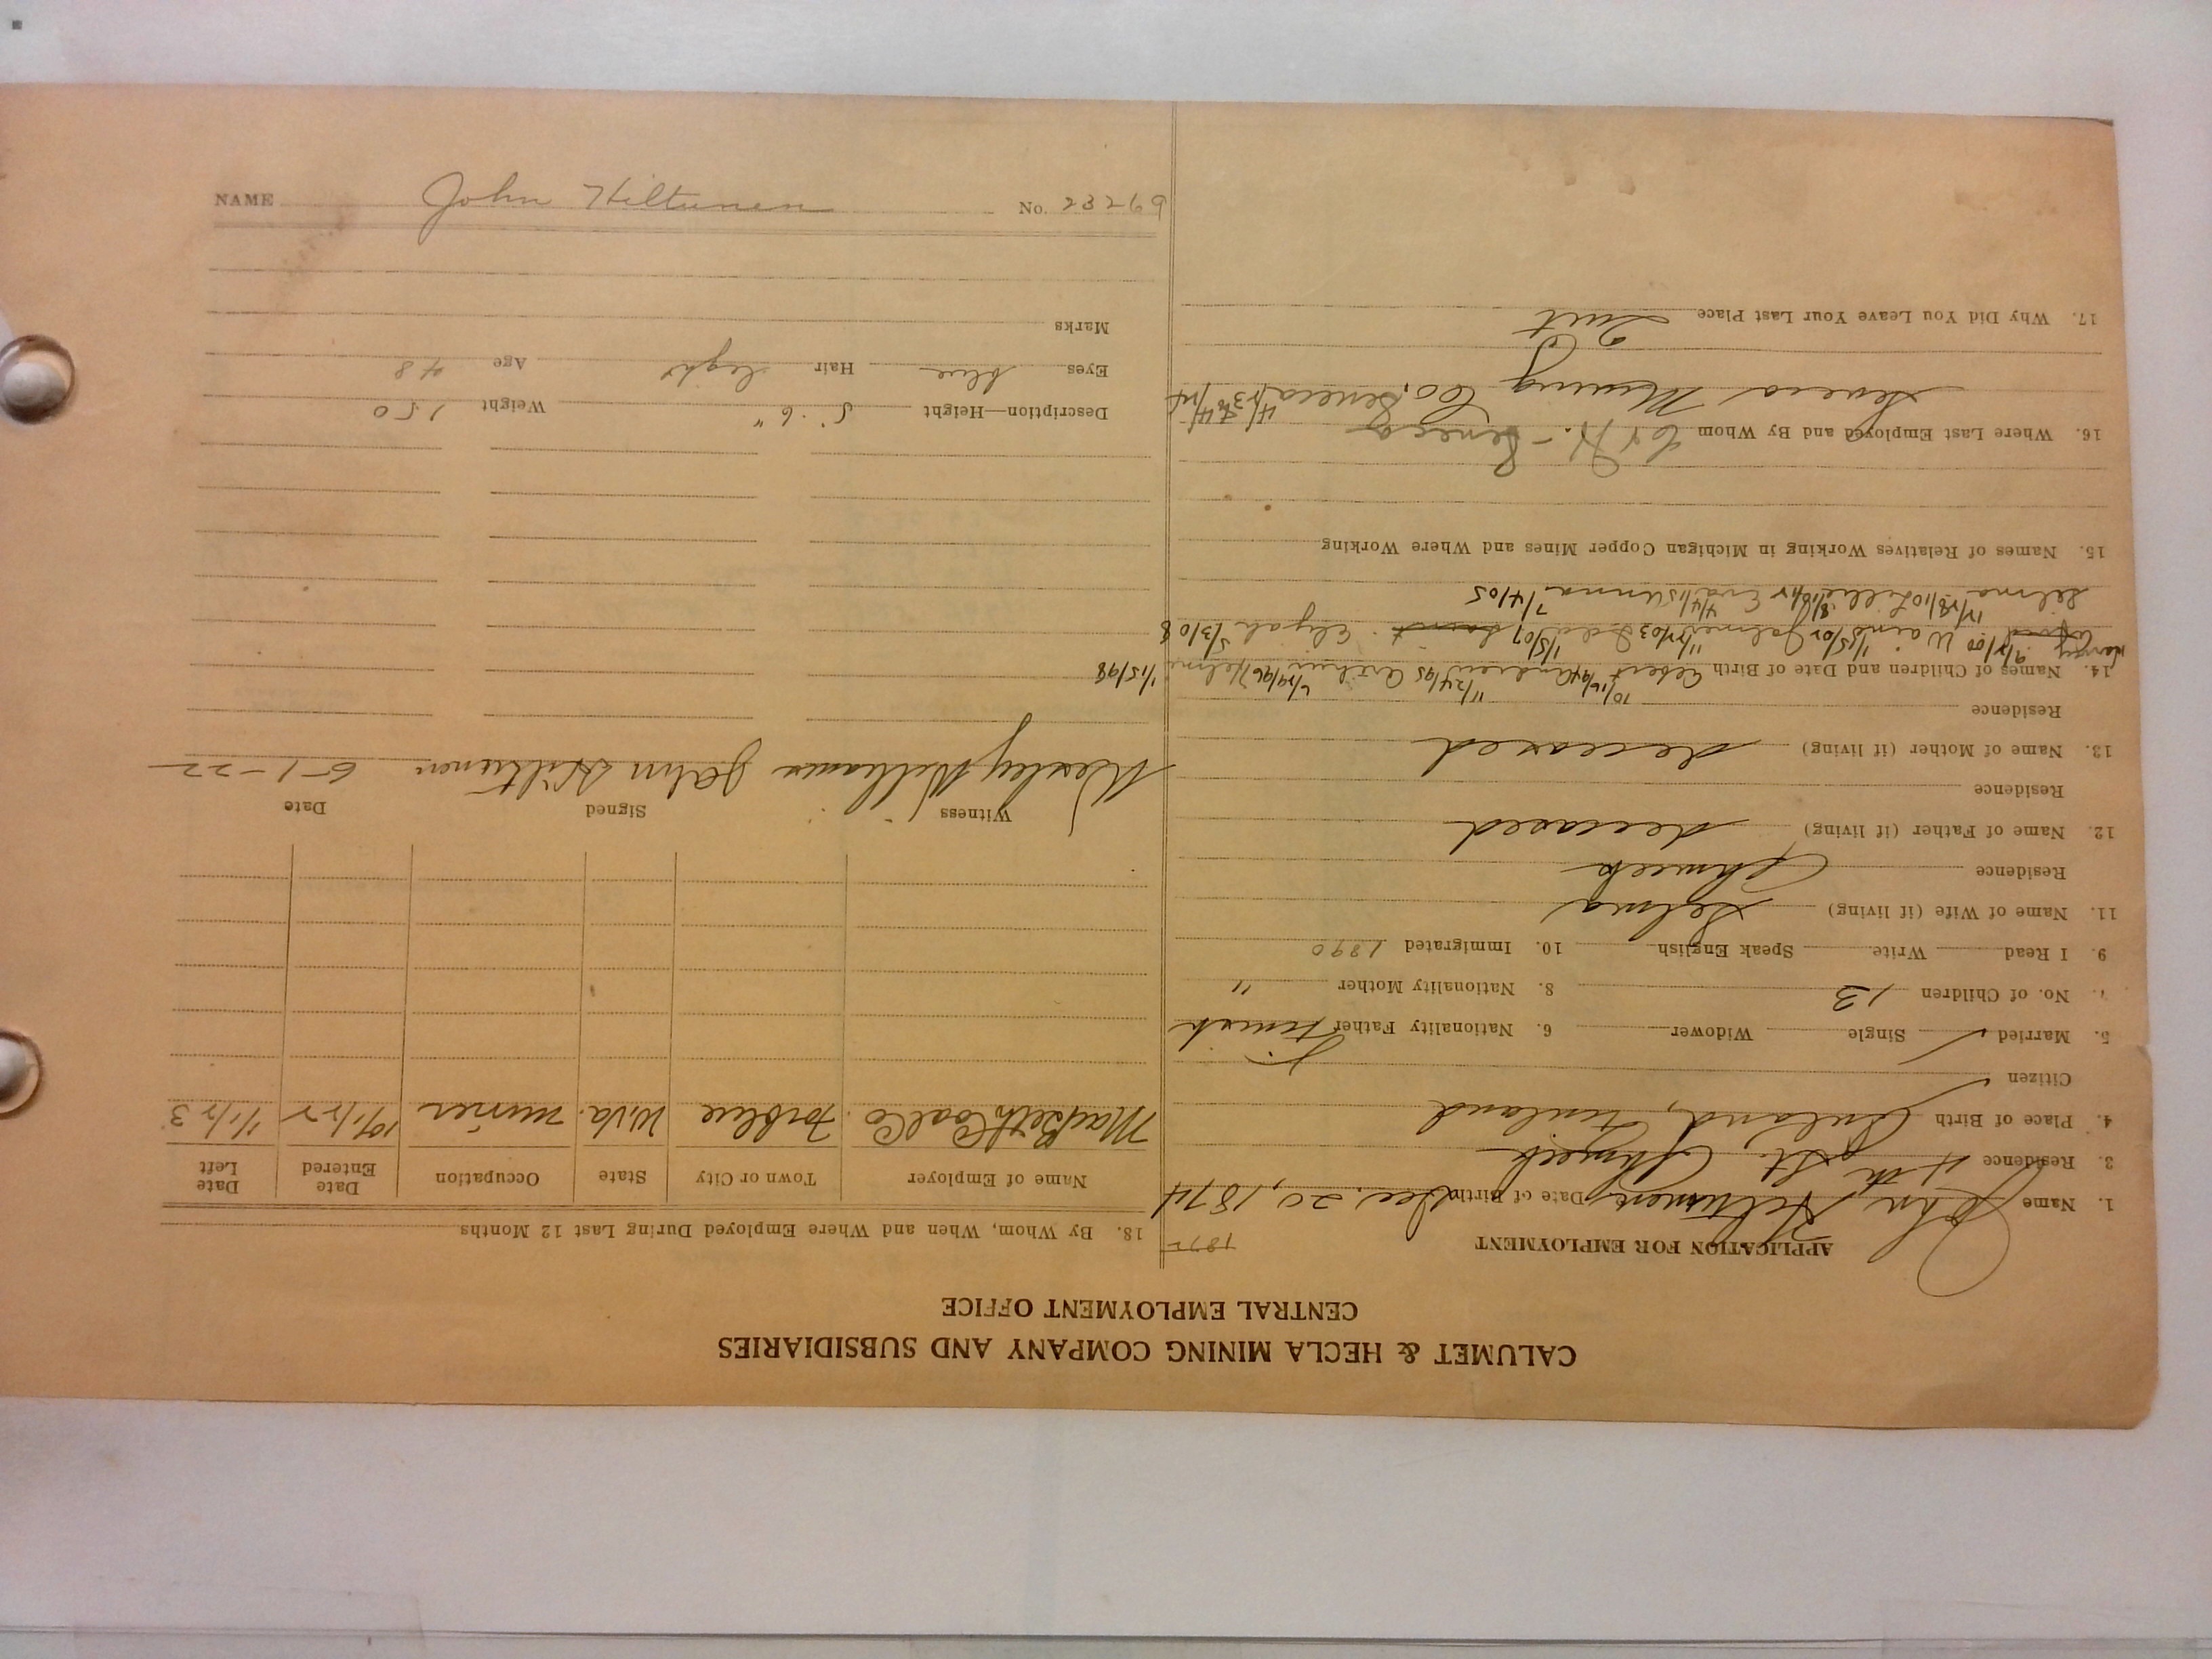 CALUMET & HECLA MINING COMPANY AND SUBSIDIARIES
CENTRAL EMPLOYMENT OFFICE
APPLICATION FOR EMPLOYMENT 1872
1. Name John Hiltunen Date of Birth Dec. 20, 1874
3. Residence 4th St. Ahmeek
4. Place of Birth Finland
Citizen
5. Married ✓ Single Widower 6. Nationality Father Finnish
7. No. of Children 13 8. Nationality Mother "
9. I Read Write Speak English 10. Immigrated 1890
11. Name of Wife (if living) Selma
Residence Ahmeek
12. Name of Father (if living) deceased
Residence
13. Name of Mother (if living) deceased
Residence
14. Names of Children and Date of Birth Albert 10/16/94 Andrew 11/24/95 Arthur 6/29/96 Helmi 1/15/98
Waino 1/25/02 Elijah 5/3/08
Selma 12/28/10 Lillie Eva Anna 7/4/05
15. Names of Relatives Working in Michigan Copper Mines and Where Working
16. Where Last Employed and By Whom C & H. - Seneca
Seneca Mining Co. Seneca
17. Why Did You Leave Your Last Place Quit
18. By Whom, When and Where Employed During Last 12 Months
Name of Employer Town or City State Occupation Date Entered Date Left
MacBeth Coal Co. W.Va. miner 10/1/22 1/1/23
Witness Signed Date
Wesley Williams John Hiltunen 6-1-22
Description—Height 5' 6" Weight 150
Eyes blue Hair light Age 48
Marks
NAME John Hiltunen No. 23279